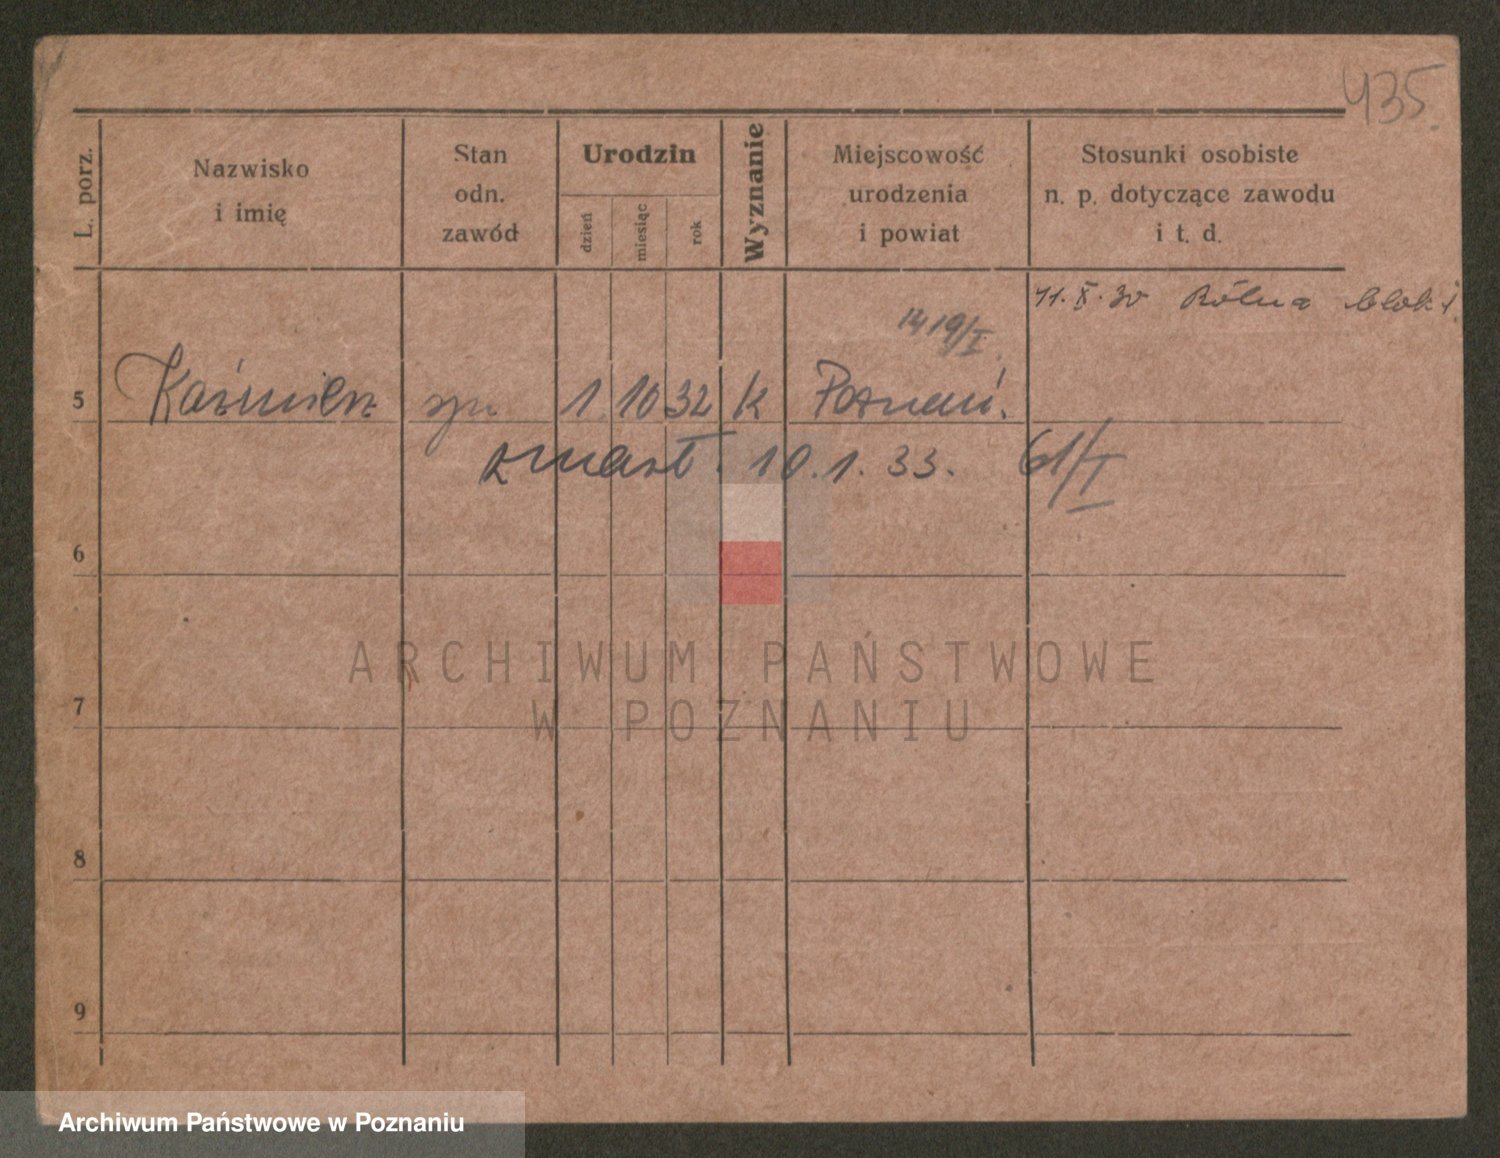 435.
L. porz.
Nazwisko
i imię
Stan
odn.
zawód
Urodzin
dzień
miesiąc
rok
Wyznanie
Miejscowość
urodzenia
i powiat
Stosunki osobiste
n. p. dotyczące zawodu
i t. d.
11. X. 30 Rólna blok 1.
1419/I
5 Kazimierz syn 1. 10 32 K Poznań.
zmarł. 10. 1. 33. 61/I
6
7
8
9
ARCHIWUM PAŃSTWOWE
W POZNANIU
Archiwum Państwowe w Poznaniu